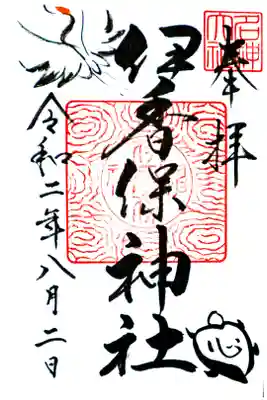 奉拝
伊香保神社
令和二年八月二日
心